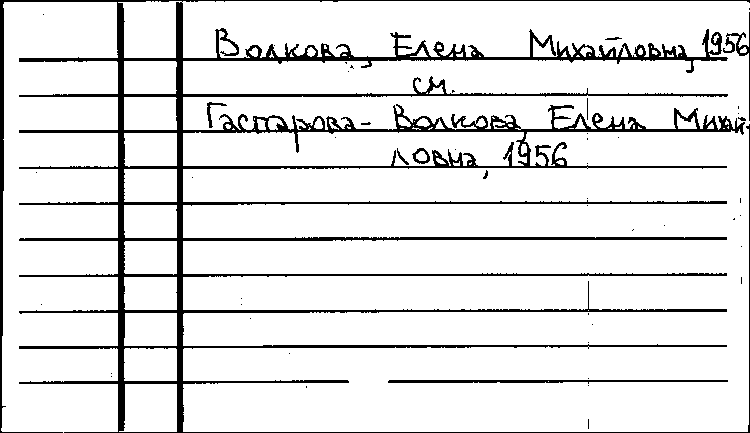 Волкова, Елена Михайловна, 1956
см.
Гаспарова-Волкова, Елена Михай-
ловна, 1956